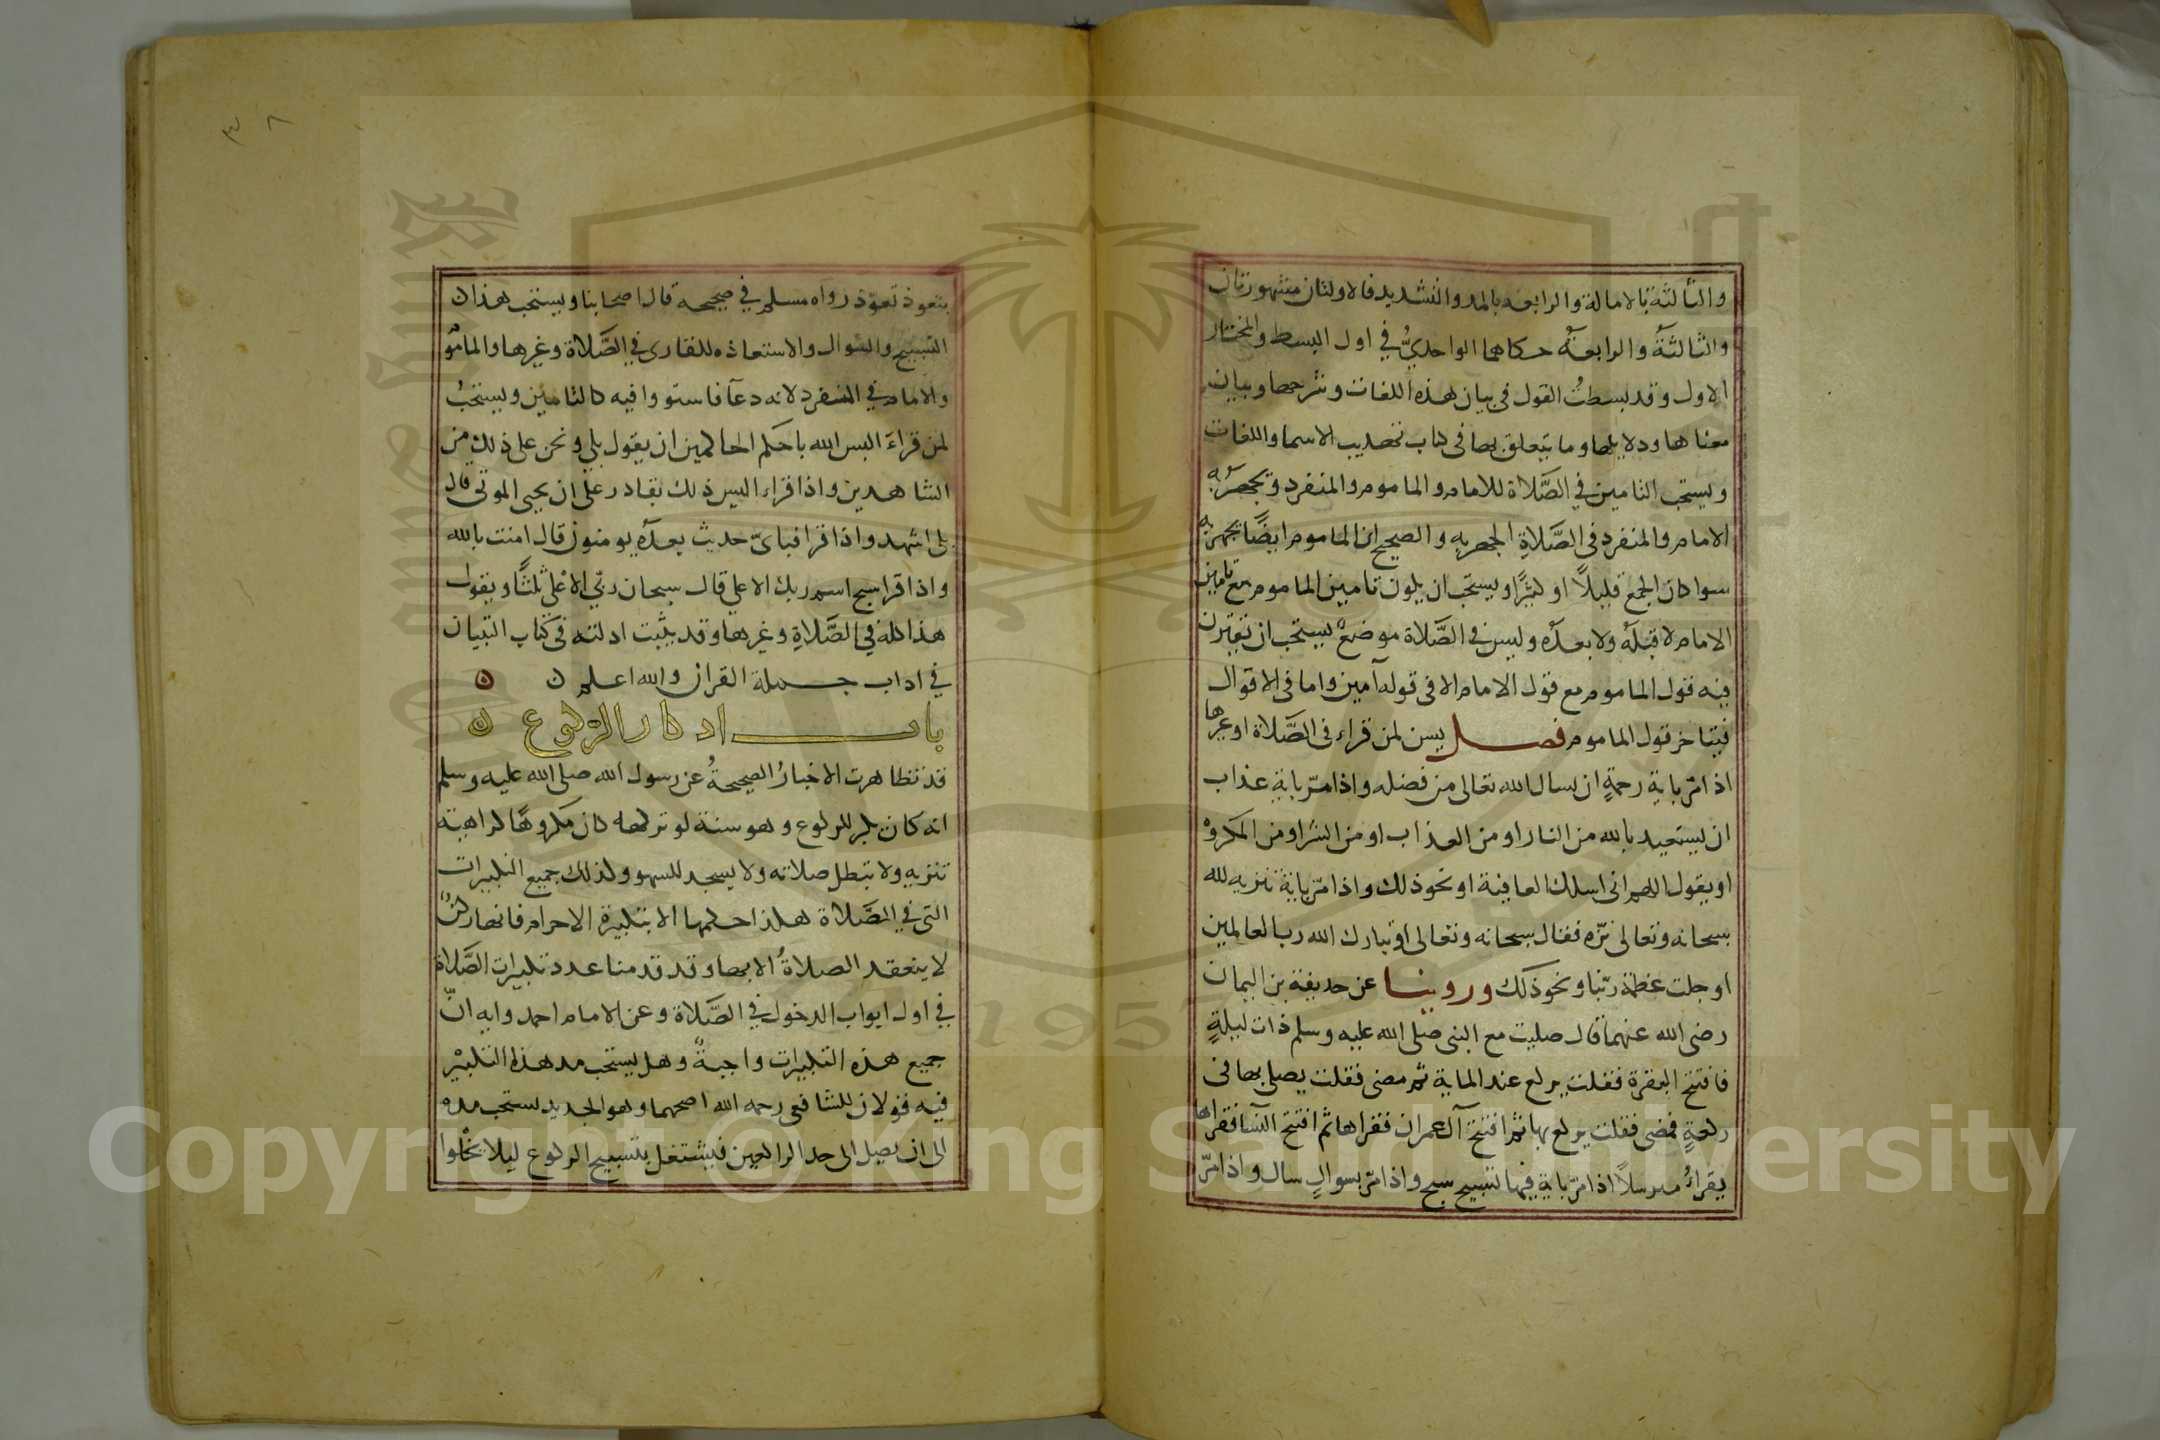 والثالثة بالامالة والرابعه بالمد والتشديد فالاولتان مشهورتان
والثالثةُ والرابعةُ حكاهما الواحديُّ في اول البسط والمختار
الاول وقد بسطتُ القول في بيان هذه اللغات وشرحها وبيان
معناها ودلايلها وما يتعلق بها في كتاب تهذيب الاسما واللغات
ويستحب التامين في الصَّلاة للامام والماموم والمنفرد ويجهرُ به
الامام والمنفرد في الصَّلاةِ الجهريه والصحيح ان الماموم ايضًا يجهر به
سوا كان الجمع قليلًا او كثيرًا ويستحَب ان يكون تامين الماموم مع تامين
الامام لا قبلَهُ ولا بعدَهُ وليس في الصَّلاة موضعٌ يستحب ان يقترن
فيه قول الماموم مع قول الامام الا في قوله آمين واما في الاقوال
فيتاخر قول الماموم فصل يسن لمن قراء في الصَّلاة او غيرها
اذا مرّ باية رحمةٍ ان يسال الله تعالى من فضله واذا مرّ باية عذاب
ان يستعيد بالله من النار او من العذاب او من الشر او من المكروْه
او يقول اللهم اني اسلك العافية او نحو ذلك واذا مرّ باية تنزيه لله
سبحانه وتعالى نزّه فقال سبحانه وتعالى او تبارك الله رب العالمين
او جلت عظمة ربّنا ونحو ذلك وروينا عن حذيفة بن اليمان
رضى الله عنهما قال صليت مع النبي صلى الله عليه وسلم ذات ليلةٍ
فافتتح البقرة فقلت يركع عند الماية ثم مضى فقلت يصلى بها في
ركعةٍ فمضى فقلت يركع بها ثم افتتح آل عمران فقراها ثم افتتح النسا فقراها
يقراءُ مترسلًا اذا مرّ باية فيها تسبيح سبح واذا مرّ بسوالٍ سال واذا مرّ
بتعوذ تعوّذ رواه مسلم في صحيحه قال اصحابنا ويستحب هذان
التسبيح والسّوال والاستعاذه للقارى في الصَّلاة وغيرها والمامُو
والامام في المنفرد لانه دعآ فاستووا فيه كالتامين ويستحَبُ
لمن قراءَ اليس الله باحكم الحاكمين ان يقول بلى ونحن على ذلك من
الشاهدين واذا قراء اليس ذلك بقادر على ان يحيى الموتى قال
بلى اشهد واذا قرا فباىّ حديث بعدَهُ يومنون قال امنت بالله
واذا قرا سبح اسم ربك الاعلى قال سبحان ربّي الاعْلى ثلثًا ويقول
هذا كله في الصَّلاةِ وغيرها وقد بيّنت ادلته في كتاب التبيان
في اداب حملة القران والله اعلم ن ن
باب اذكار الرّكوع ن
قد تظاهرت الاخبارُ الصحيحةُ عن رسول الله صلى الله عليه وسلم
انه كان يكبر للركوع وهو سنة لو تركها كان مكروهًا كراهية
تنزيهٍ ولا تبطل صلاته ولا يسجد للسهو وكذلك جميع التكبيرات
التي في الصَّلاة هكذا حكمها الا بتكبيرة الاحرام فانها ركنٌ
لا ينعقد الصلاةُ الا بها وقد قدمنا عدد تكبيرات الصَّلاة
في اول ابواب الدخول في الصَّلاة وعن الامام احمد وايه انّ
جميع هذه التكبيرات واجبةٌ وهل يستحب مد هذا التكبيْر
فيه قولان للشافعى رحمه الله اصحهما وهو الجديد يستحب مده
الى ان يصل الى حد الراكعين فيشتغل بتسبيح الركوع ليلا يخلوا
Copyright © King Saud University
King Saud University
1957